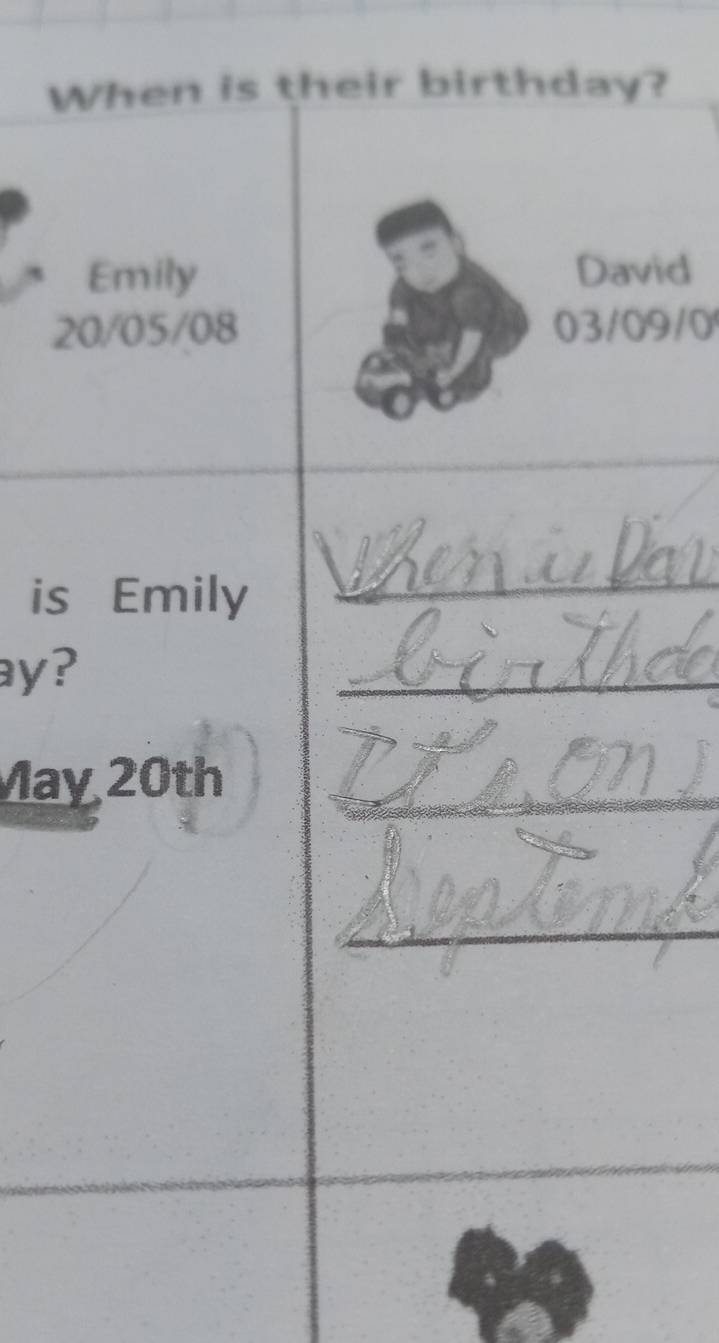 When is their birthday?
Emily
20/05/08
David
03/09/0
is Emily
ay?
May 20th
When is Dav
birthda
It's on
Septemb